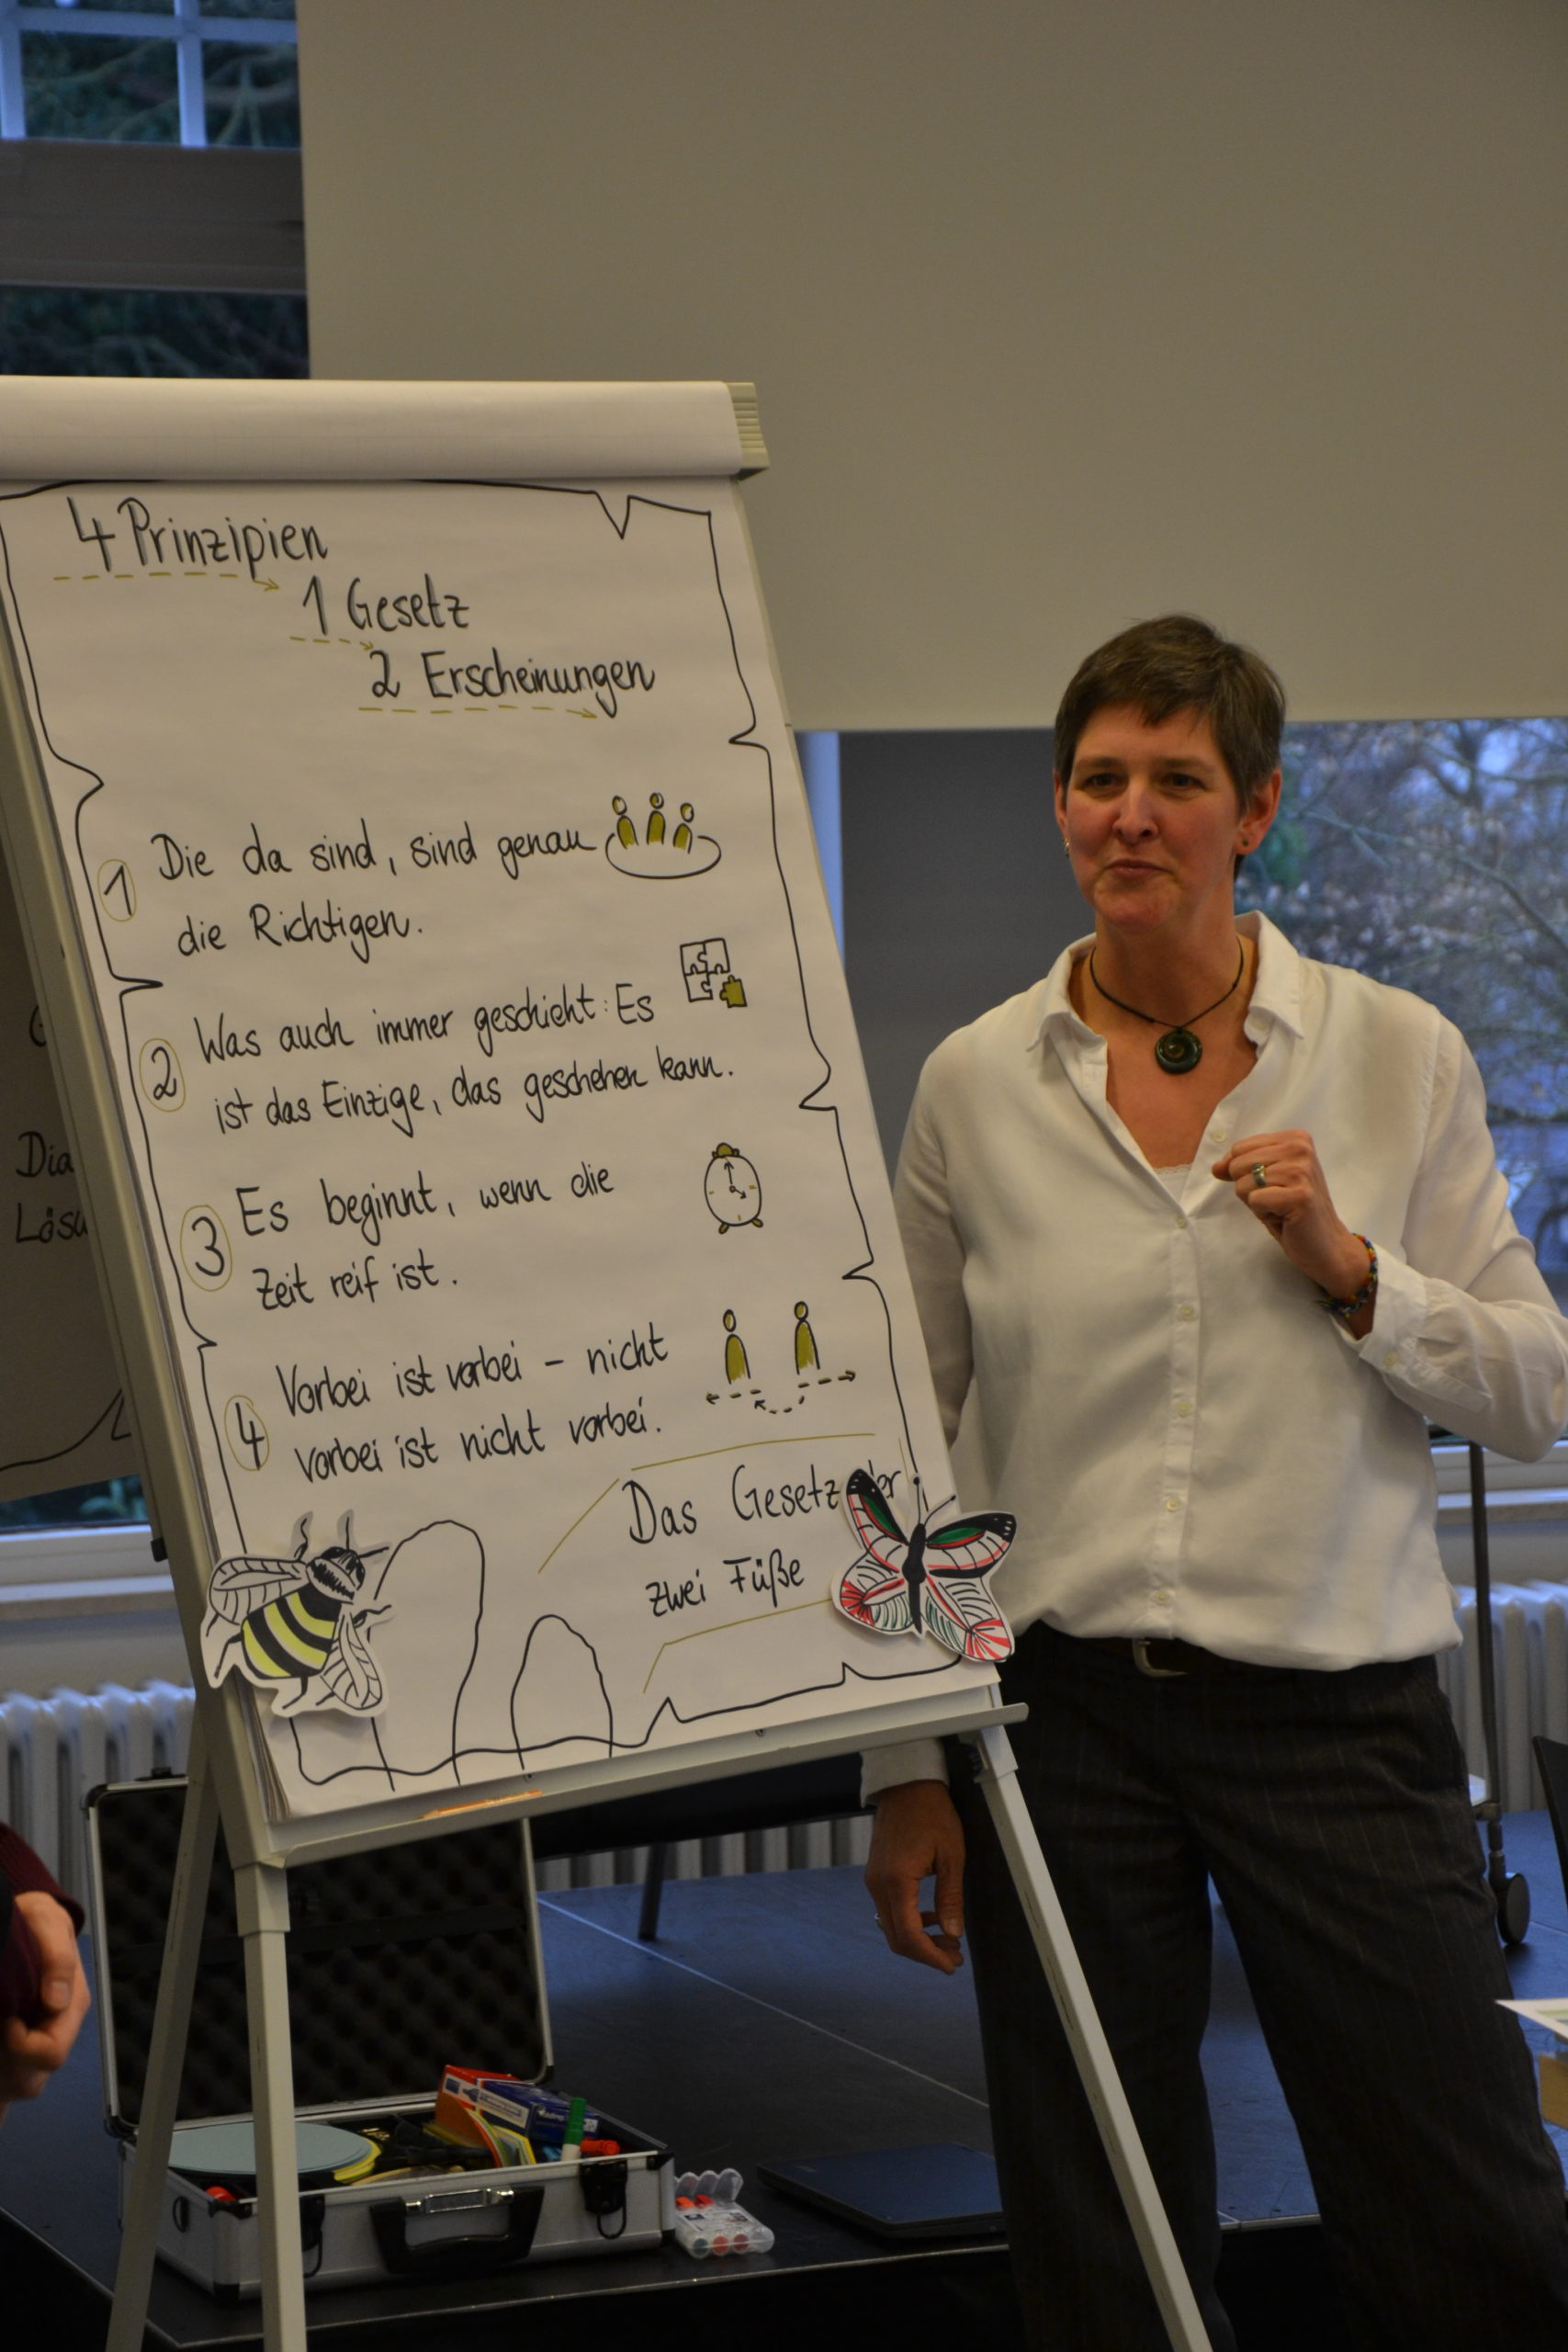 4 Prinzipien
1 Gesetz
2 Erscheinungen
1 Die da sind, sind genau
die Richtigen.
2 Was auch immer geschieht: Es
ist das Einzige, das geschehen kann.
3 Es beginnt, wenn die
Zeit reif ist.
4 Vorbei ist vorbei – nicht
vorbei ist nicht vorbei.
Das Gesetz der
zwei Füße